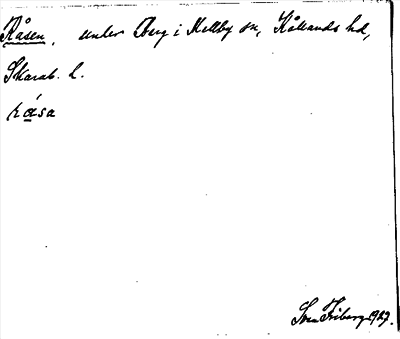 Råsen, under Berg i Mellby sn, Kållands hd,
Skarab. l.
rǻsa
Sven Friberg 1929.